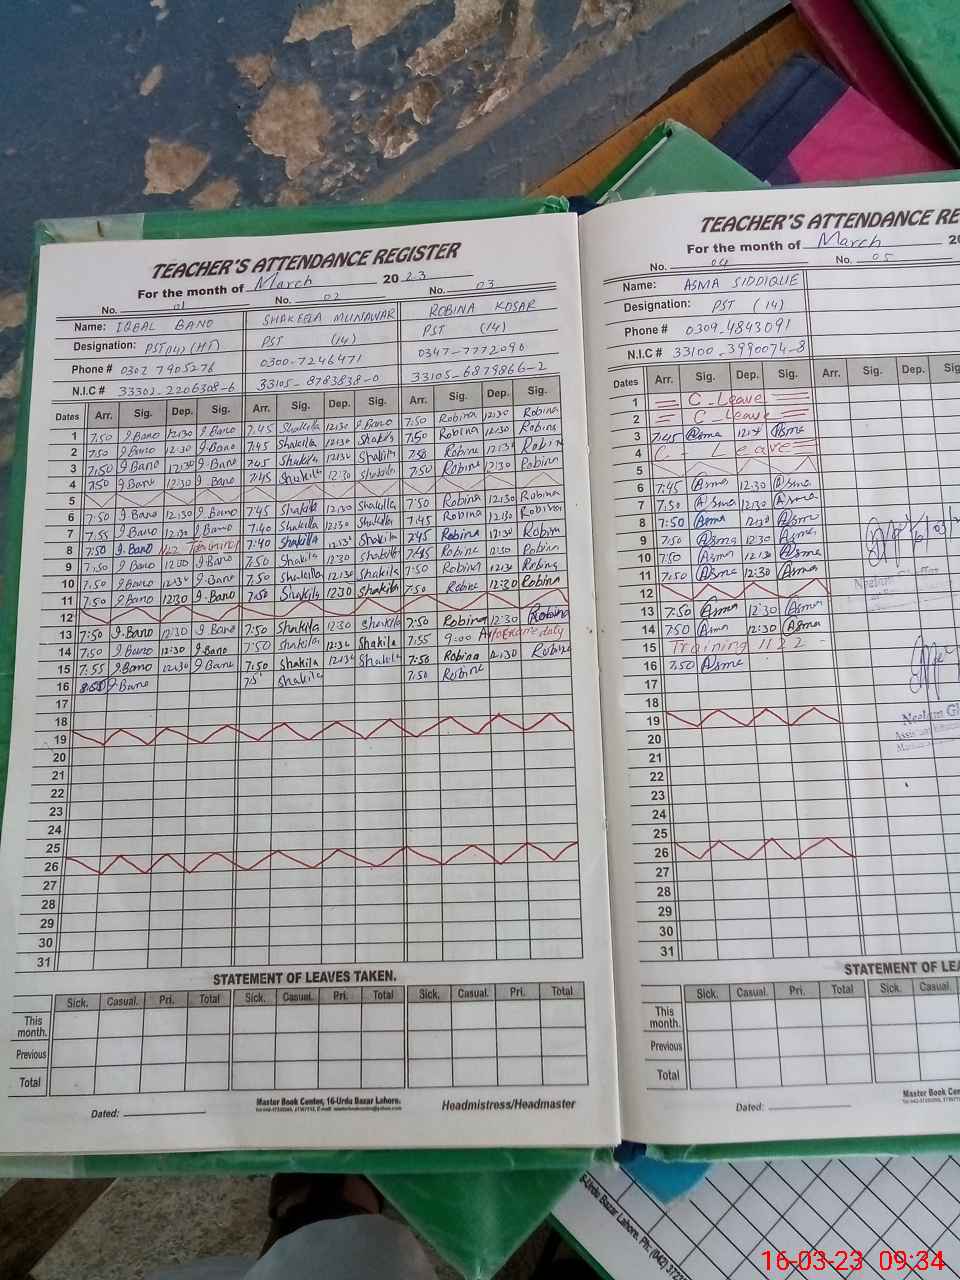 TEACHER'S ATTENDANCE REGISTER
For the month of March 2023
No. 01 No. 02 No. 03
Name: IQBAL BANO SHAKEELA MUNAWAR ROBINA KOSAR
Designation: PST (14) (HT) PST (14) PST (14)
Phone # 0302 7905276 0300-7246471 0347-7772090
N.I.C # 33302-2206308-6 33105-8783838-0 33105-6879866-2
Dates Arr. Sig. Dep. Sig. Arr. Sig. Dep. Sig. Arr. Sig. Dep. Sig.
1 7:50 I.Bano 12:30 I.Bano 7:45 Shakilla 12:30 7:50 Robina 12:30 Robina
2 7:50 I.Bano 12:30 I.Bano 7:45 Shakilla 12:30 Shakila 7:50 Robina 12:30 Robina
3 7:50 I.Bano 12:30 I.Bano 7:45 Shakilla 12:30 Shakila 7:50 Robina 12:30 Robina
4 7:50 I.Bano 12:30 I.Bano 7:45 Shakila 12:30 Shakilla 7:50 Robina 12:30 Robina
5
6 7:50 I.Bano 12:30 I.Bano 7:45 Shakila 12:30 Shakilla 7:50 Robina 12:30 Robina
7 7:55 I.Bano 12:30 I.Bano 7:40 Shakilla 12:30 Shakilla 7:45 Robina 12:30 Robina
8 7:50 I.Bano 1122 Training 7:40 Shakilla 12:30 Shakila 7:45 Robina 12:30 Robina
9 7:50 I.Bano I.Bano 7:50 Shakila 12:30 Shakilla 7:45 Robina 12:30 Robina
10 7:50 I.Bano 12:30 I.Bano 7:50 Shakeilla 12:30 Shakila 7:50 Robina 12:30 Robina
11 7:50 I.Bano 12:30 I.Bano 7:50 Shakila 12:30 Shakila 7:50 Robina 12:30 Robina
12
13 7:50 I.Bano 12:30 I.Bano 7:50 Shakila 12:30 Shakila 7:50 Robina 12:30 Robina
14 7:50 I.Bano 12:30 I.Bano 7:50 Shakila 12:30 Shakila 7:55 9:00 Exame duty
15 7:55 I.Bano 12:30 I.Bano 7:50 Shakila 12:30 Shakila 7:50 Robina 12:30 Robina
16 I.Bano Shakila 7:50 Robina
17
18
19
20
21
22
23
24
25
26
27
28
29
30
31
STATEMENT OF LEAVES TAKEN.
Sick. Casual. Pri. Total Sick. Casual. Pri. Total Sick. Casual. Pri. Total
This month.
Previous
Total
Master Book Center, 16-Urdu Bazar Lahore.
Dated:
Headmistress/Headmaster
TEACHER'S ATTENDANCE RE
For the month of March 20
No. 04 No. 05
Name: ASMA SIDDIQUE
Designation: PST (14)
Phone # 0309-4843091
N.I.C # 33100-3990074-8
Dates Arr. Sig. Dep. Sig. Arr. Sig. Dep. Sig.
1 C_Leave
2 C_Leave
3 7:45 Asma 12:30 Asma
4 C. Leave
5
6 7:45 Asma 12:30 Asma
7 7:50 Asma 12:30 Asma
8 7:50 Asma 12:30 Asma
9 7:50 Asma 12:30 Asma
10 7:50 Asma 12:30 Asma
11 7:50 Asma 12:30 Asma
12
13 7:50 Asma 12:30 Asma
14 7:50 Asma 12:30 Asma
15 Training 1122
16 7:50 Asma
17
18
19
20
21
22
23
24
25
26
27
28
29
30
31
STATEMENT OF LEA
Sick. Casual. Pri. Total Sick. Casual.
This month.
Previous
Total
Master Book Cen
Dated:
16-03-23 09:34